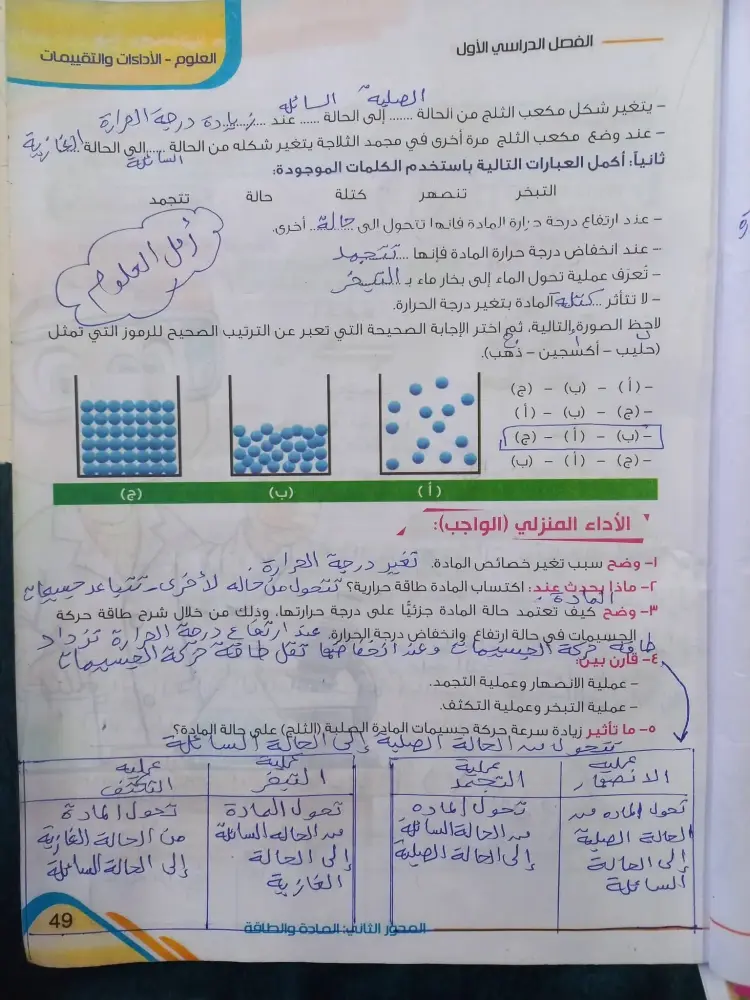 الفصل الدراسي الأول
العلوم - الأداءات والتقييمات
الصلبة السائلة
- يتغير شكل مكعب الثلج من الحالة ...... إلى الحالة ...... عند زيادة درجة الحرارة
- عند وضع مكعب الثلج مرة أخرى في مجمد الثلاجة يتغير شكله من الحالة ...... إلى الحالة ... الغازية
السائلة
ثانياً: أكمل العبارات التالية باستخدم الكلمات الموجودة:
التبخر تنصهر كتلة حالة تتجمد
- عند ارتفاع درجة حرارة المادة فانها تتحول الى حالة أخرى.
- عند انخفاض درجة حرارة المادة فإنها ... تتجمد
- تُعرَف عملية تحول الماء إلى بخار ماء بـ التبخر
- لا تتأثر ... كتلة المادة بتغير درجة الحرارة.
أمل العلوم
لاحظ الصورة التالية، ثم اختر الإجابة الصحيحة التي تعبر عن الترتيب الصحيح للرموز التي تمثل
ب أ ج
(حليب - أكسجين - ذهب).
- (أ) - (ب) - (ج)
- (ج) - (ب) - (أ)
- (ب) - (أ) - (ج)
- (ج) - (أ) - (ب)
(أ) (ب) (ج)
الأداء المنزلي (الواجب):
١- وضح سبب تغير خصائص المادة. تغير درجة الحرارة
٢- ماذا يحدث عند: اكتساب المادة طاقة حرارية؟ تتحول من حاله لأخرى - تتباعد جسيمات
المادة
٣- وضح كيف تعتمد حالة المادة جزئيًا على درجة حرارتها، وذلك من خلال شرح طاقة حركة
الجسيمات في حالة ارتفاع وانخفاض درجة الحرارة. عند ارتفاع درجة الحرارة تزداد
طاقة حركة الجسيمات وعند انخفاضها تقل طاقة حركة الجسيمات
٤- قارن بين:
- عملية الانصهار وعملية التجمد.
- عملية التبخر وعملية التكثف.
٥- ما تأثير زيادة سرعة حركة جسيمات المادة الصلبة (الثلج) على حالة المادة؟
تتحول من الحالة الصلبة إلى الحالة السائلة
عملية الانصهار
عملية التجمد
عملية التبخر
عملية التكثف
تحول الماده من
الحالة الصلبة
إلى الحالة
السائلة
تحول الماده
من الحالة السائلة
إلى الحالة الصلبة
تحول المادة
من الحاله السائلة
إلى الحالة
الغازية
تحول المادة
من الحالة الغازية
إلى الحالة السائلة
المحور الثاني: المادة والطاقة
49